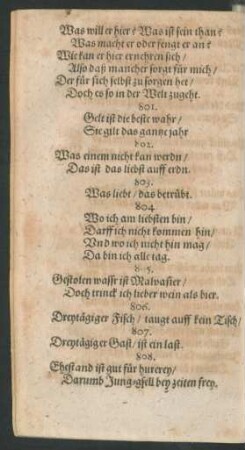 Was will er hier? Was ist sein than?
Was macht er oder fengt er an?
Wie kan er hier ernehren sich/
Also daß mancher sorgt für mich/
Der für sich selbst zu sorgen het/
Doch es so in der Welt zugeht.
801.
Gelt ist die beste wahr/
Sie gilt das gantze jahr
802.
Was einem nicht kan werdn/
Das ist das liebst auff erdn.
803.
Was liebt/ das betrübt.
804.
Wo ich am liebsten bin/
Darff ich nicht kommen hin/
Vnd wo ich nicht hin mag/
Da bin ich alle tag.
805.
Gestolen wassr ist Malvasier/
Doch trinck ich lieber wein als bier.
806.
Dreytägiger Fisch/ taugt auff kein Tisch/
807.
Dreytägiger Gast/ ist ein last.
808.
Ehestand ist gut für hurerey/
Darumb Jung-gsell bey zeiten frey.